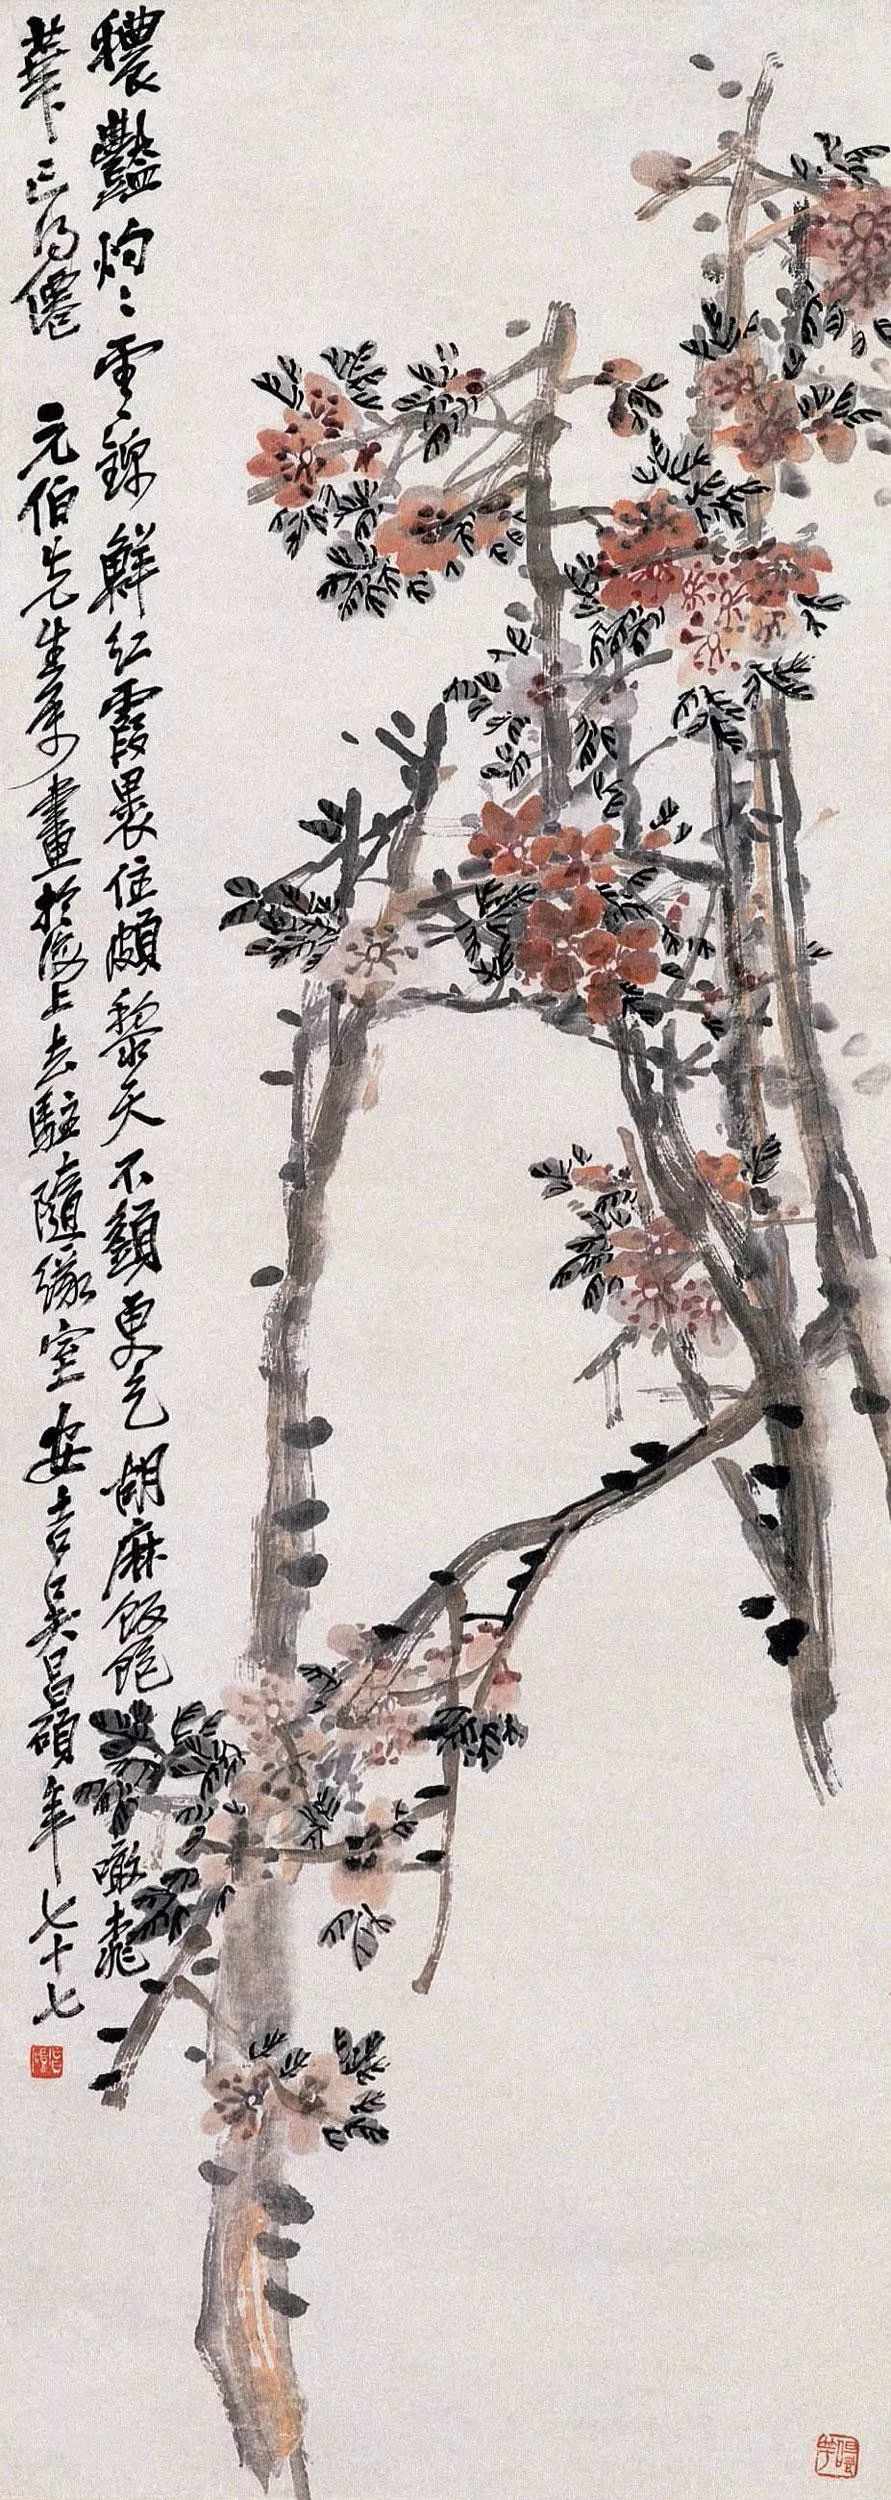 穠艷灼灼雲錦鮮紅霞裹住頗黎天不須更乞胡麻飯飽噉桃
華便得僊　元伯先生屬畫於海上去駐隨緣室安吉吳昌碩年七十七